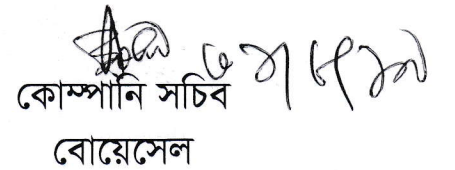 কোম্পানি সচিব
বোয়েসেল